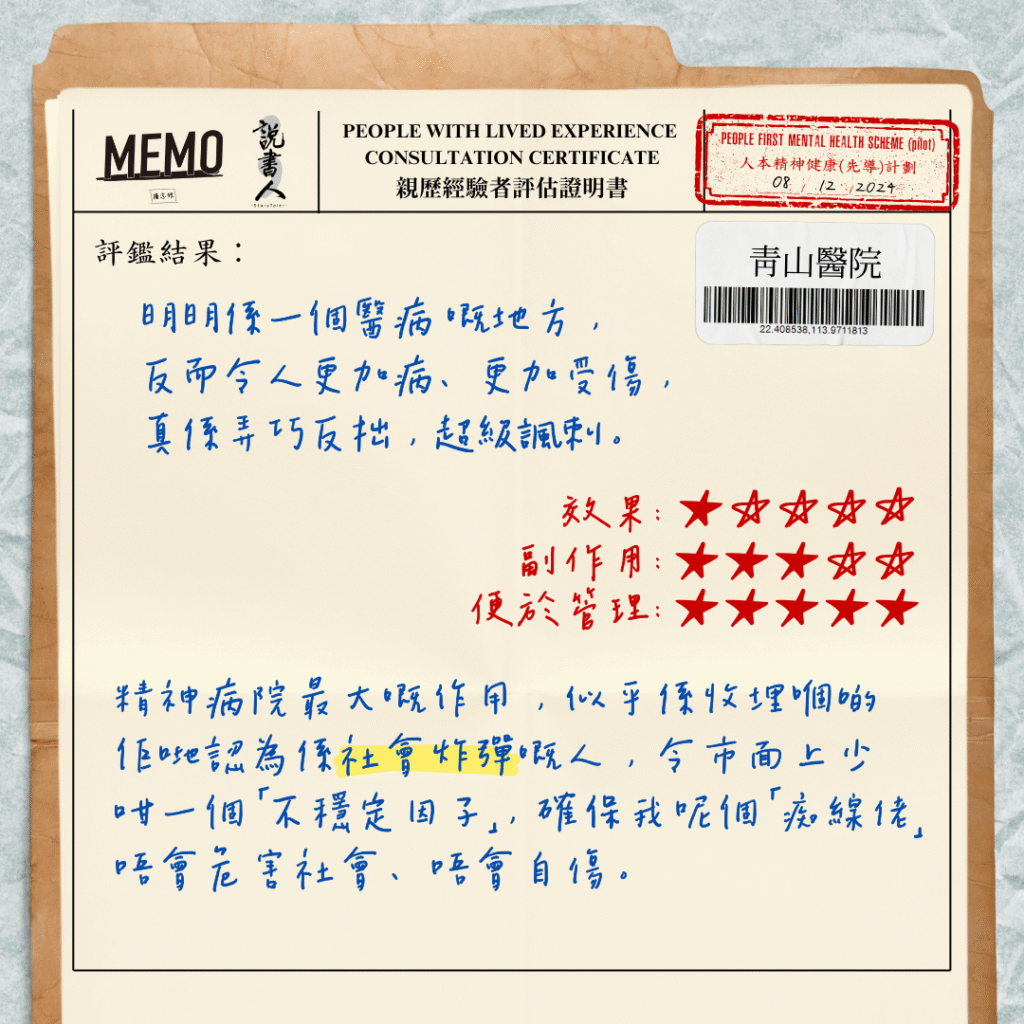 MEMO
說書人
PEOPLE WITH LIVED EXPERIENCE
CONSULTATION CERTIFICATE
親歷經驗者評估證明書
PEOPLE FIRST MENTAL HEALTH SCHEME (pilot)
人本精神健康(先導)計劃
08 / 12 / 2024
評鑑結果：
青山醫院
22.408538,113.9711813
明明係一個醫病嘅地方，
反而令人更加病、更加受傷，
真係弄巧反拙，超級諷刺。
效果：
副作用：
便於管理：
精神病院最大嘅作用，似乎係收埋嗰啲
佢哋認為係社會炸彈嘅人，令市面上少
咁一個「不穩定因子」，確保我呢個「痴線佬」
唔會危害社會、唔會自傷。